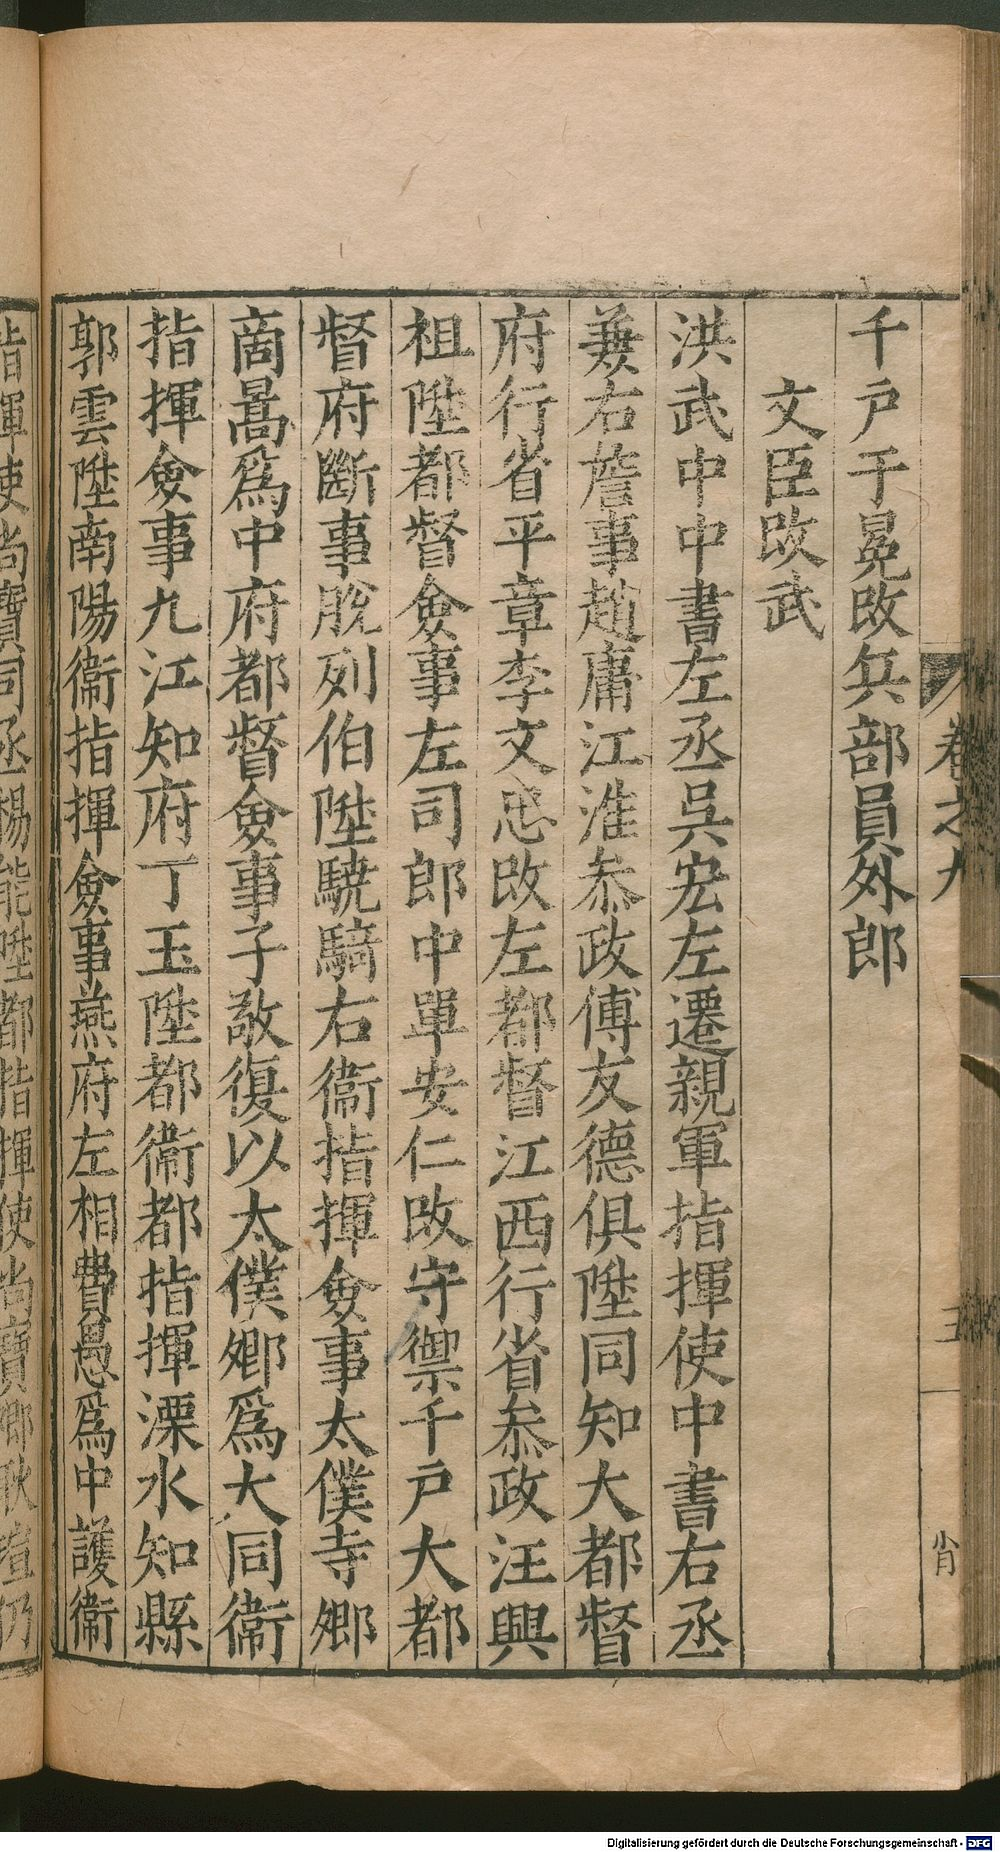 千戶于冕改兵部員外郎
文臣改武
洪武中中書左丞吳宏左遷親軍指揮使中書右丞
兼右詹事趙庸江淮參政傅友德俱陞同知大都督
府行省平章李文忠改左都督江西行省參政汪興
祖陞都督僉事左司郎中單安仁改守禦千戶大都
督府斷事脫列伯陞驍騎右衞指揮僉事太僕寺卿
商暠爲中府都督僉事子敬復以太僕卿爲大同衞
指揮僉事九江知府丁玉陞都衞都指揮溧水知縣
郭雲陞南陽衞指揮僉事燕府左相費愚爲中護衞
指揮使尚寶司丞楊能陞都指揮使尚寶卿耿瑄仍
卷之九
五
肖
Digitalisierung gefördert durch die Deutsche Forschungsgemeinschaft - DFG